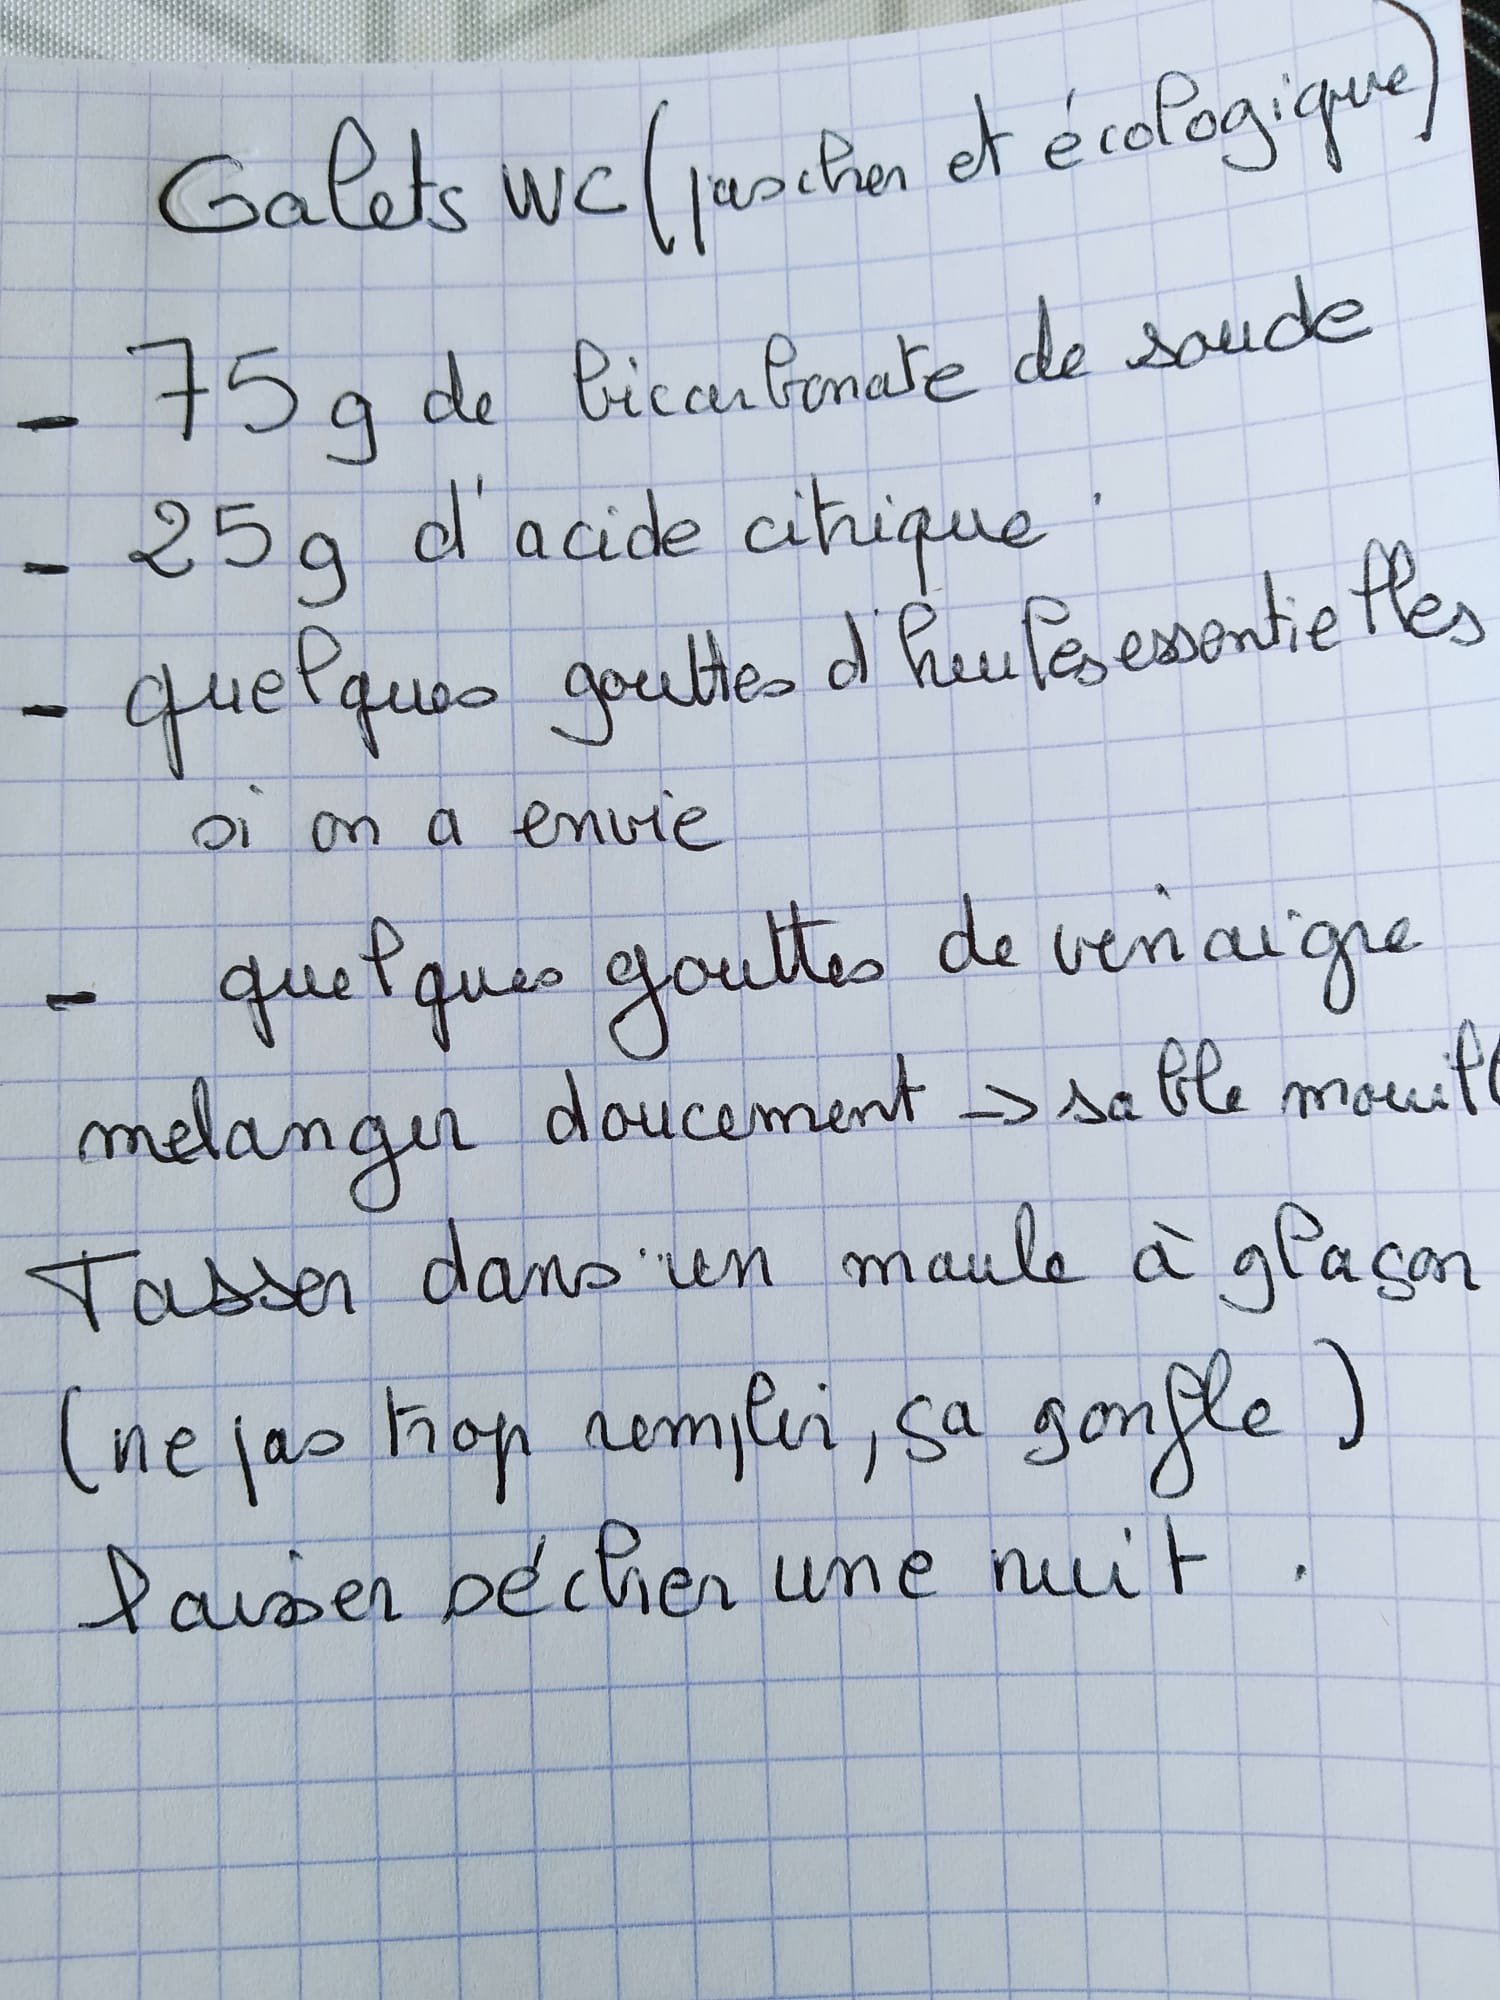 Galets WC (pas cher et écologique)
- 75g de bicarbonate de soude
- 25g d'acide citrique
- quelques gouttes d'huiles essentielles
si on a envie
- quelques gouttes de vinaigre
melanger doucement -> sable mouill
Tasser dans un moule à glaçon
(ne pas trop remplir, ça gonfle)
laisser sécher une nuit.